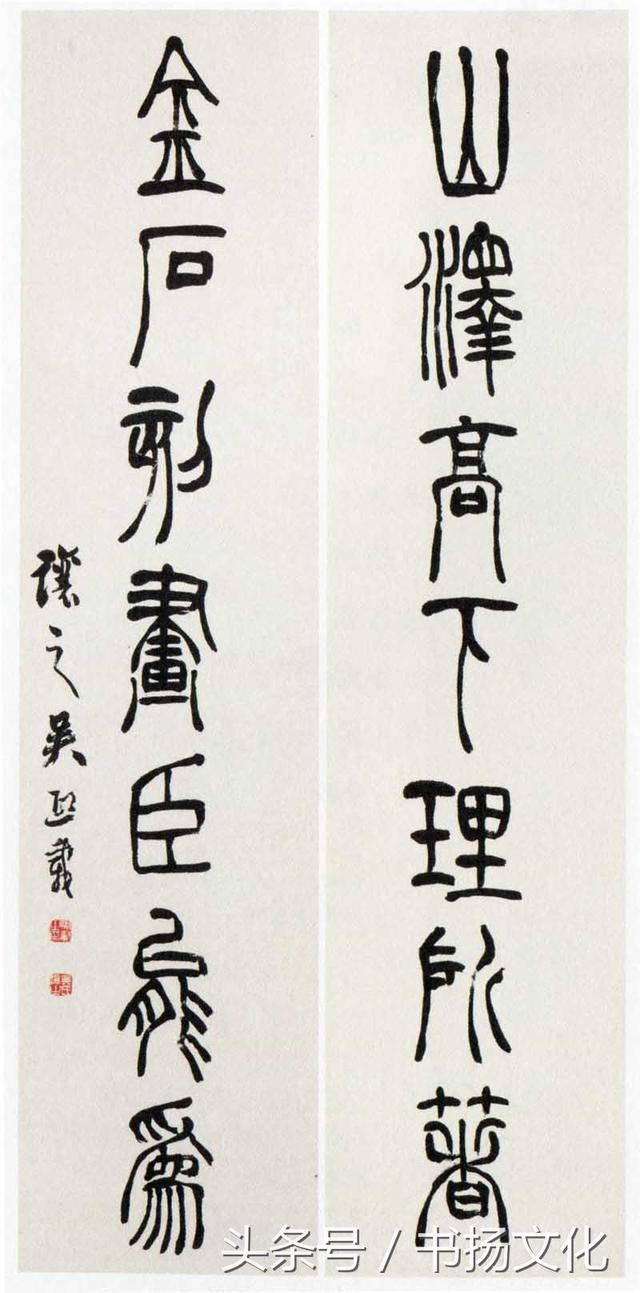 山澤高下理所著
金石刻畫臣能為
讓之吳熙載
头条号 / 书扬文化